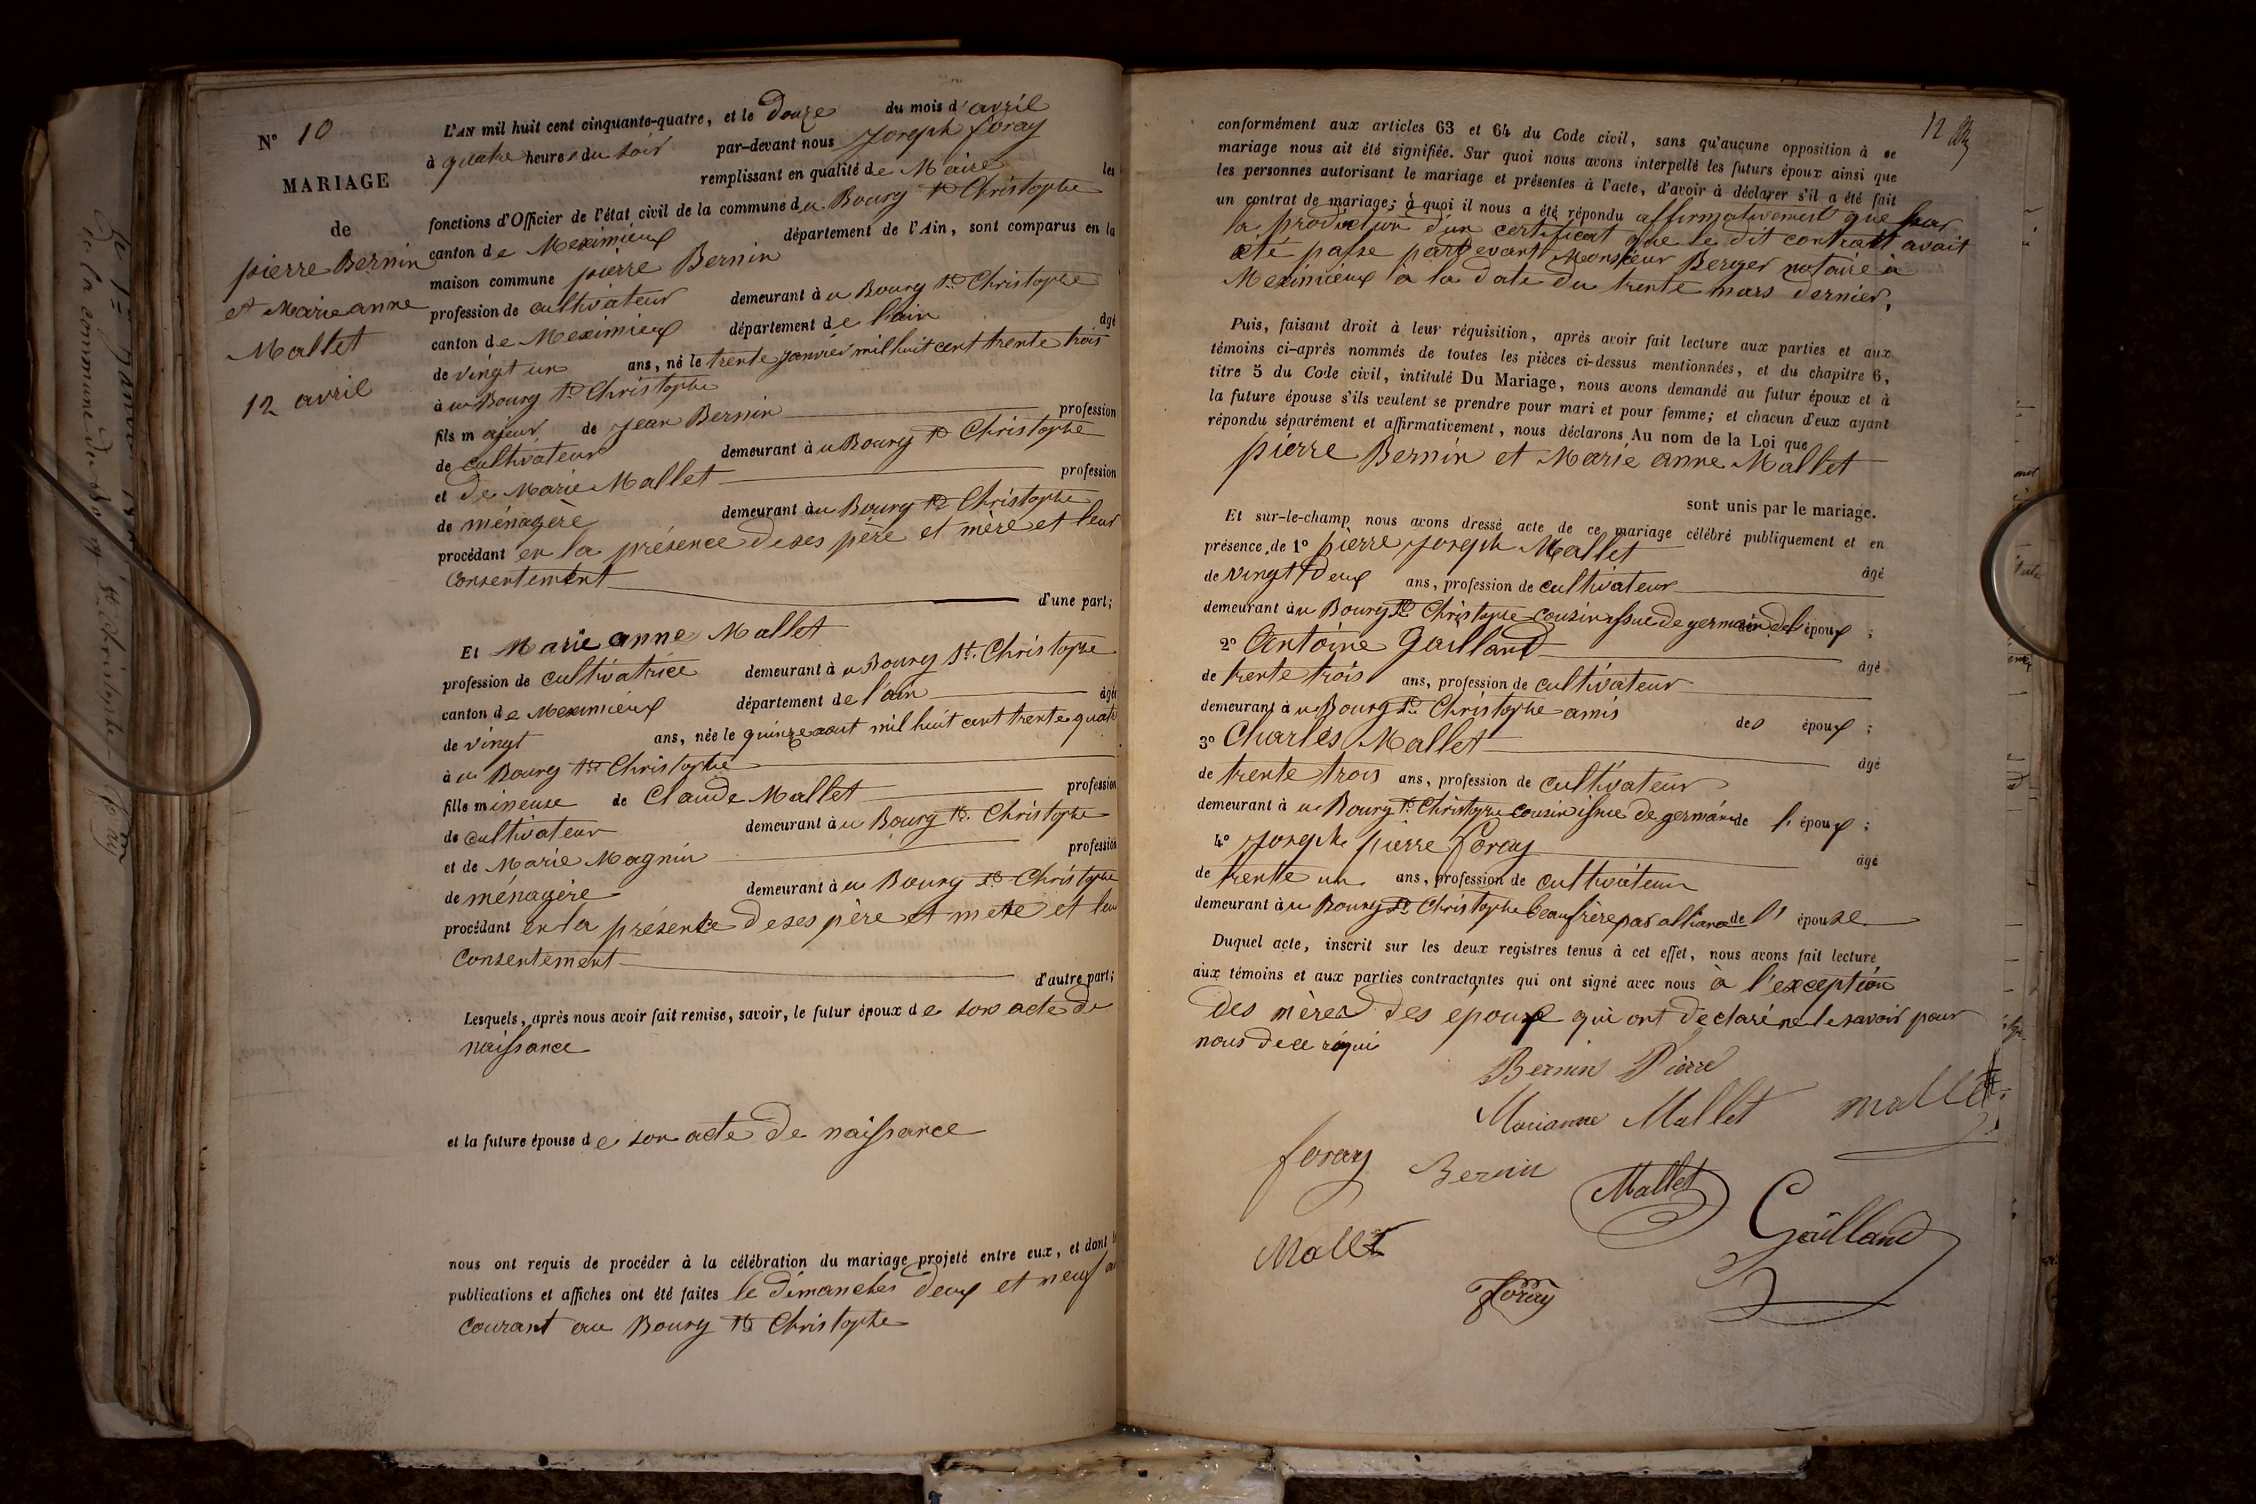 N° 10
MARIAGE
de
pierre Bernin
et Marie anne
Mallet
12 avril
L'AN mil huit cent cinquante-quatre, et le Douze du mois d'avril
à quatre heures du soir par-devant nous Joseph foray
remplissant en qualité de Maire les
fonctions d'Officier de l'état civil de la commune du Bourg St Christophe
canton de Meximieux département de l'Ain, sont comparus en la
maison commune pierre Bernin
profession de cultivateur demeurant à u Bourg St Christophe
canton de Meximieux département de l'ain âgé
de vingt un ans, né le trente janvier mil huit cent trente trois
à u Bourg St Christophe
fils majeur de Jean Bernin profession
de cultivateur demeurant à u Bourg St Christophe
et de Marie Mallet profession
de ménagère demeurant au Bourg St Christophe
procédant en la présence de ses père et mère et leur
consentement d'une part;
Et Marie anne Mallet
profession de cultivatrice demeurant à u Bourg St. Christophe
canton de Meximieux département de l'ain âgée
de vingt ans, née le quinze aout mil huit cent trente quatre
à u Bourg St Christophe
fille mineuse de Claude Mallet profession
de cultivateur demeurant à u Bourg St. Christophe
et de Marie Magnin profession
de ménagère demeurant à u Bourg St Christophe
procédant en la présence de ses père et mere et leur
Consentement d'autre part;
Lesquels, après nous avoir fait remise, savoir, le futur époux de son acte de
naissance
et la future épouse de son acte de naissance
nous ont requis de procéder à la célébration du mariage projeté entre eux, et dont les
publications et affiches ont été faites le dimanches deux et neuf du
courant au Bourg St Christophe
12
conformément aux articles 63 et 64 du Code civil, sans qu'aucune opposition à ce
mariage nous ait été signifiée. Sur quoi nous avons interpellé les futurs époux ainsi que
les personnes autorisant le mariage et présentes à l'acte, d'avoir à déclarer s'il a été fait
un contrat de mariage; à quoi il nous a été répondu affirmativement que par
la production d'un certificat que le dit contrat avait
été passé pardevant Monsieur Berger notaire à
Meximieux à la date du trente mars dernier,
Puis, faisant droit à leur réquisition, après avoir fait lecture aux parties et aux
témoins ci-après nommés de toutes les pièces ci-dessus mentionnées, et du chapitre 6,
titre 5 du Code civil, intitulé Du Mariage, nous avons demandé au futur époux et à
la future épouse s'ils veulent se prendre pour mari et pour femme; et chacun d'eux ayant
répondu séparément et affirmativement, nous déclarons Au nom de la Loi que
pierre Bernin et Marie anne Mallet
sont unis par le mariage.
Et sur-le-champ nous avons dressé acte de ce mariage célébré publiquement et en
présence de 1° pierre Joseph Mallet âgé
de vingt deux ans, profession de cultivateur
demeurant à u Bourg St Christophe cousin issue de germain de l'époux ;
2° Antoine Gailland âgé
de trente trois ans, profession de cultivateur
demeurant à u Bourg St Christophe amis des époux ;
3° Charles Mallet âgé
de trente trois ans, profession de cultivateur
demeurant à u Bourg St Christophe cousin issue de germain de l'époux ;
4° Joseph pierre foray âgé
de trente un ans, profession de cultivateur
demeurant à u Bourg St Christophe beaufrère par alliance de l'épouse
Duquel acte, inscrit sur les deux registres tenus à cet effet, nous avons fait lecture
aux témoins et aux parties contractantes qui ont signé avec nous à l'exception
des mères des epoux qui ont declaré ne le savoir pour
nous de ce requi
Bernin Pierre
Marianne Mallet mallet
foray Bernin Mallet
Gailland
Mallet
Foray